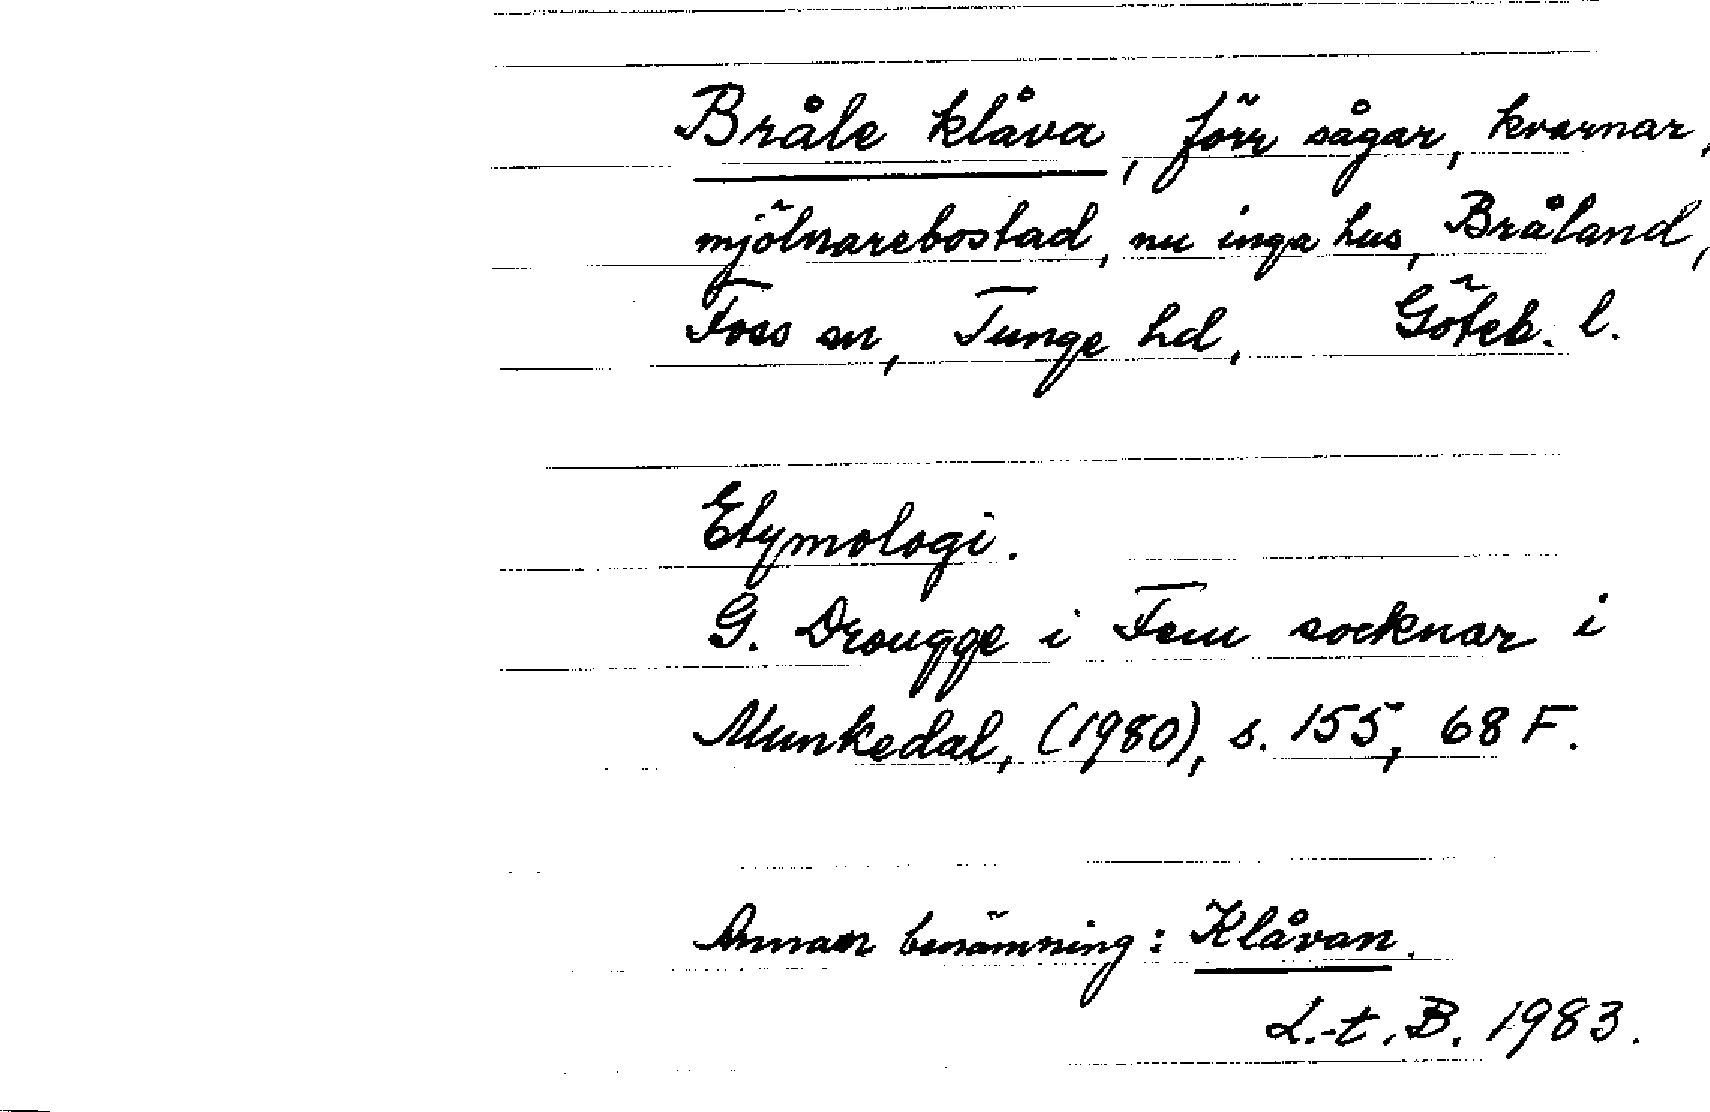 Bråle klåva, förr sågar, kvarnar,
mjölnarebostad, nu inga hus, Bråland,
Foss sn, Tunge hd, Göteb. l.
Etymologi.
G. Drougge i Fem socknar i
Munkedal, (1980), s. 155, 68 F.
Annan benämning: Klåvan.
L.-t. B. 1983.